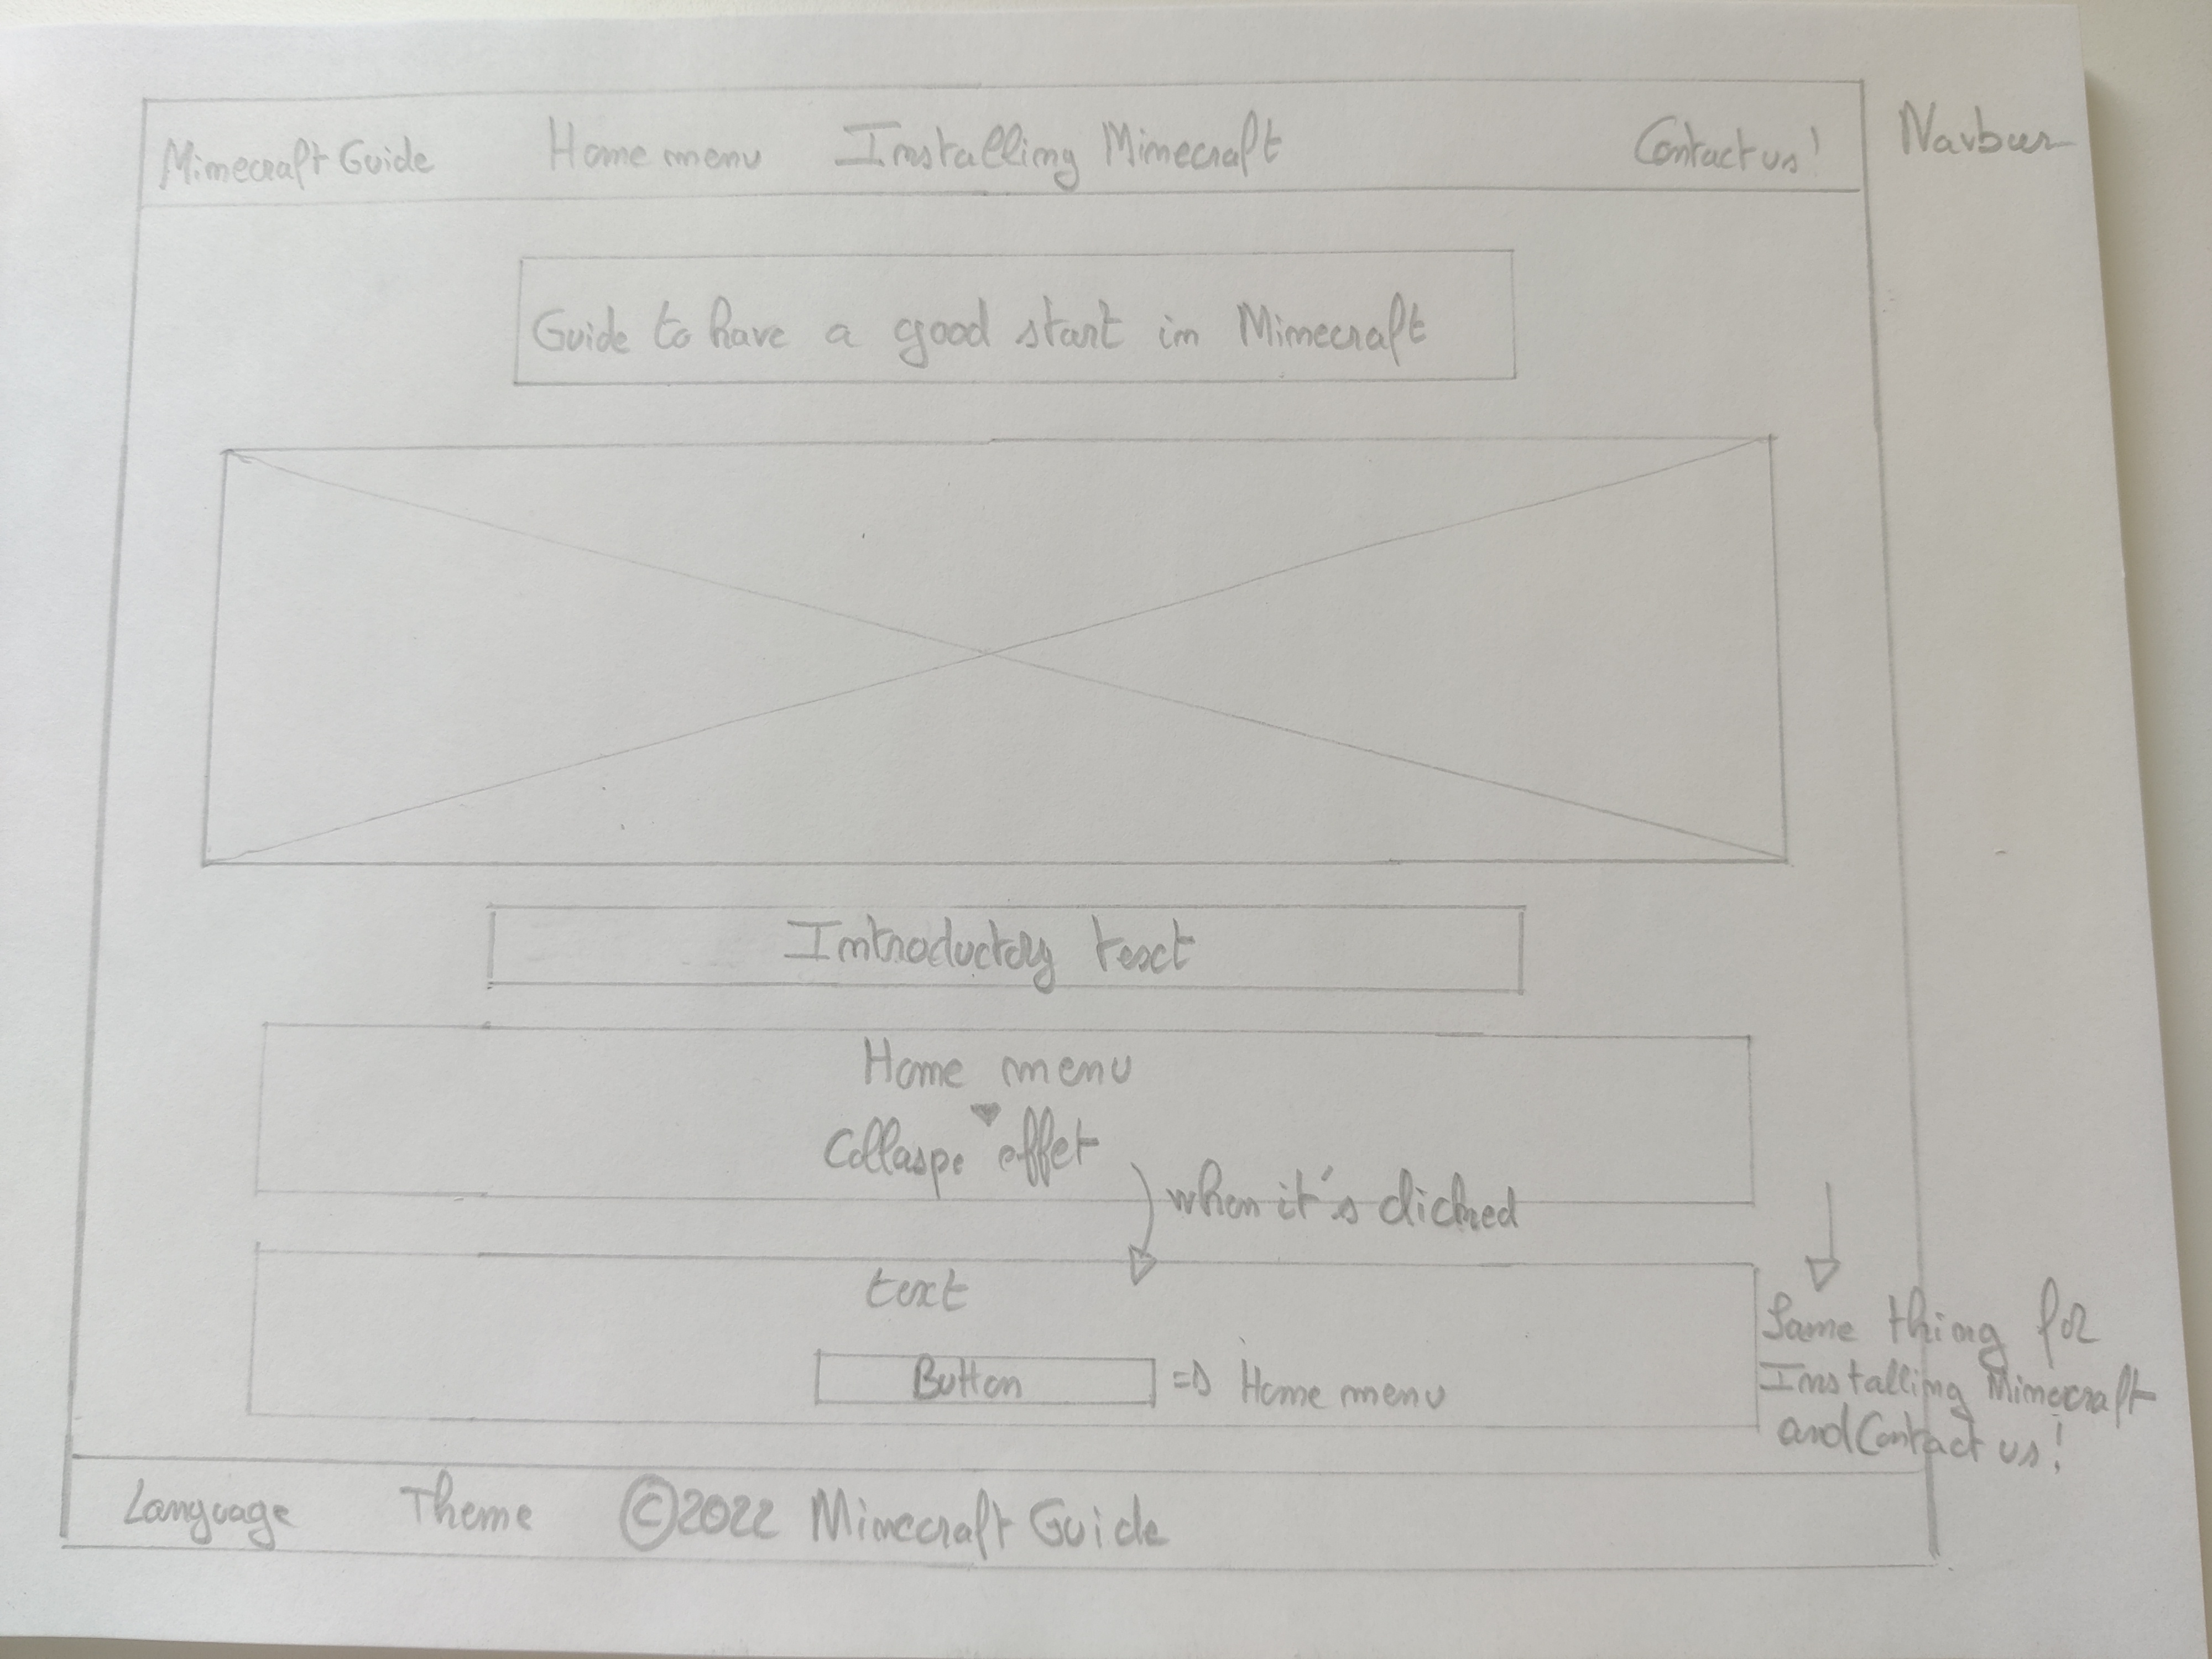 Minecraft Guide Home menu Installing Minecraft Contact us! Navbar
Guide to have a good start in Minecraft
Introductory text
Home menu
Collaspe effet
when it's clicked
text
Button => Home menu
Same thing for
Installing Minecraft
and Contact us!
Language Theme ©2022 Minecraft Guide